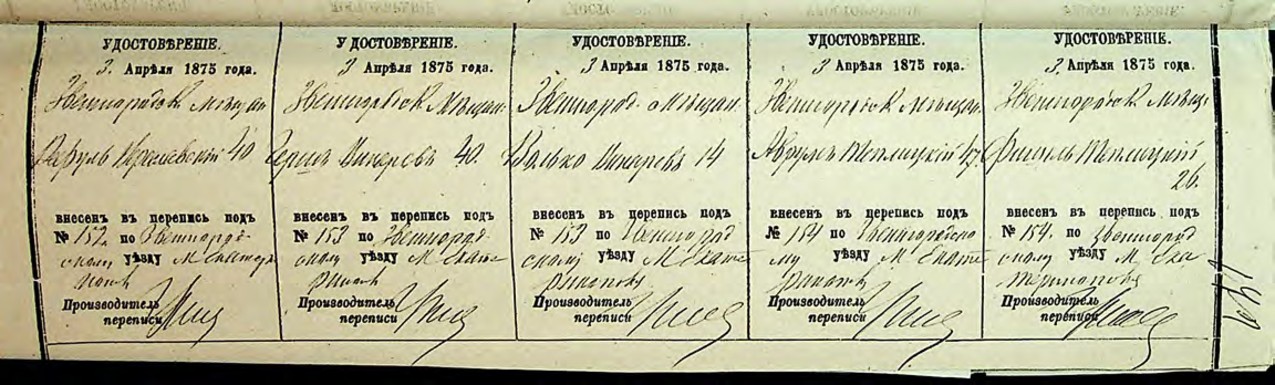 УДОСТОВѢРЕНІЕ.
3. Апрѣля 1875 года.
Звенигородск. мѣщан.
40
внесенъ въ перепись подъ
№ 152. по Звенигород-
скому уѣзду М. Екатер
Производитель
переписи
УДОСТОВѢРЕНІЕ.
3 Апрѣля 1875 года.
Звенигородск. Мѣщан.
40.
внесенъ въ перепись подъ
№ 153 по Звенигород-
скому уѣзду М. Екате
Производитель
переписи
УДОСТОВѢРЕНІЕ.
3 Апрѣля 1875 года.
Звенигород. мѣщан.
Волько 14
внесенъ въ перепись подъ
№ 153 по Звенигород
скому уѣзду М. Екате
ринополь
Производитель
переписи
УДОСТОВѢРЕНІЕ.
3 Апрѣля 1875 года.
Звенигородск. мѣщан.
Аврумъ Теплицкій 47
внесенъ въ перепись подъ
№ 154 по Звенигородско
му уѣзду М. Екате
Производитель
переписи
УДОСТОВѢРЕНІЕ.
3. Апрѣля 1875 года.
Звенигородск. мѣщ.
Фишель Теплицкій
26.
внесенъ въ перепись подъ
№ 154. по Звенигород
скому уѣзду М. Ека
Производитель
переписи